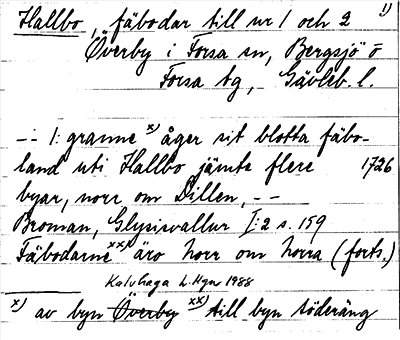 Hallbo, fäbodar till nr 1 och 2 1)
Överby i Forsa sn, Bergsjö o
Forsa tg, Gävleb. l.
-.- 1: granne x) äger sit blotta fäbo-
land uti Hallbo jämte flere 1726
byar, norr om Dillen, - -
Broman, Glysisvallur I:2 s. 159
Fäbodarne xx) äro norr om norra (forts.)
Kalvhaga L. Hgn 1988
x) av byn Överby xx) till byn söderäng